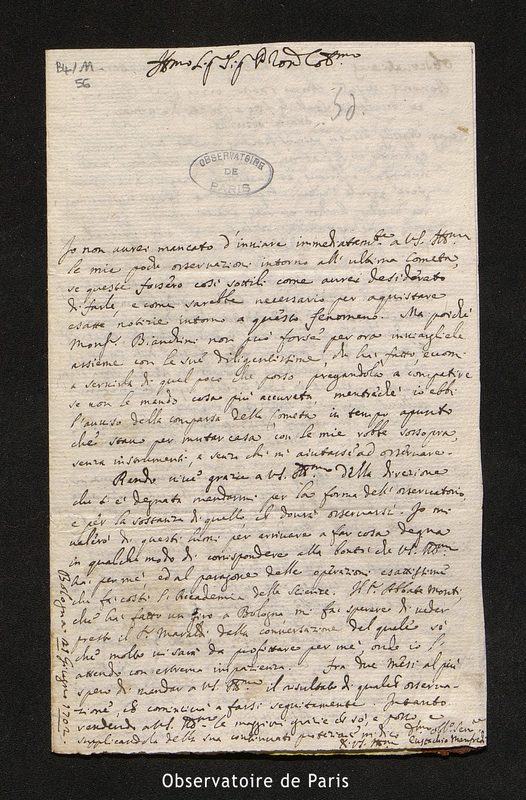 B4/M
56
Ill.mo Sig. Sig. P.ron Col.mo
OBSERVATOIRE
DE
PARIS
Io non aurei mancato d'inuiare immediatam.te a V.S. Ill.ma
le mie poche osservazioni intorno all' ultima Cometa,
se queste fossero così sottili come aurei desiderato
di farle, e come sarebbe necessario per acquistare
esatte notizie intorno a questo fenomeno. Ma poiche
Mons. Bianchini non può forse per ora inuiargliele
assieme con le sue diligentissime mi hà fatto
a servirla di quel poco che posso, pregandola a compatire
se non le mando cosa più accurata, mentreche io ebbi
l'auuiso della comparsa della Cometa in tempo apunto
che stauo per mutar casa, con le mie robbe sossopra,
senza instrumenti, e senza chi mi aiutasse ad osseruare.
Rendo uiue grazie a V.S. Ill.ma della direzione
che si è degnata mandarmi per la forma dell' osseruatorio,
e per la sostanza di quello che dourà osseruarsi. Io mi
ualerò di questi lumi per arriuare a far cosa degna
in qualche modo di corrispondere alla bontà che V.S. Ill.ma
hà per me, ed al paragone delle operazioni esattissime
che fà costì l'Accademia delle Scienze. Il S. Abbate Monti,
che hà fatto un giro a Bologna mi fà sperare di ueder
presto il S. Maraldi della conuersazione del quale sò
che molto ui sarà da profittare per me, onde io l'
attendo con estrema impazienza. Frà due mesi al più
spero di mandar a V.S. Ill.ma il risultato di qualche osserua-
zione, che comincerà a farsi seguitamente. Intanto
rendendo a V.S. Ill.ma le maggiori grazie che sò, e posso, e
supplicandola della sua continuata protezione mi dico
Di V.S. Ill.ma
Eustachio Manfredi
Bologna 21 Giugno 1702.
Observatoire de Paris